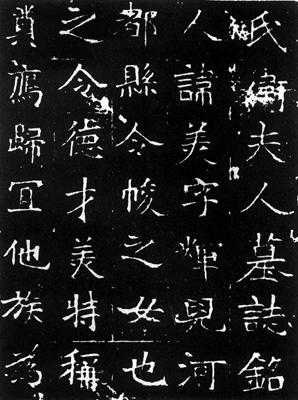 氏衛夫人墓誌銘
人諱美字輝兒河
都縣令悛之女也
之令德才美特稱
奠鴈歸冝他族為